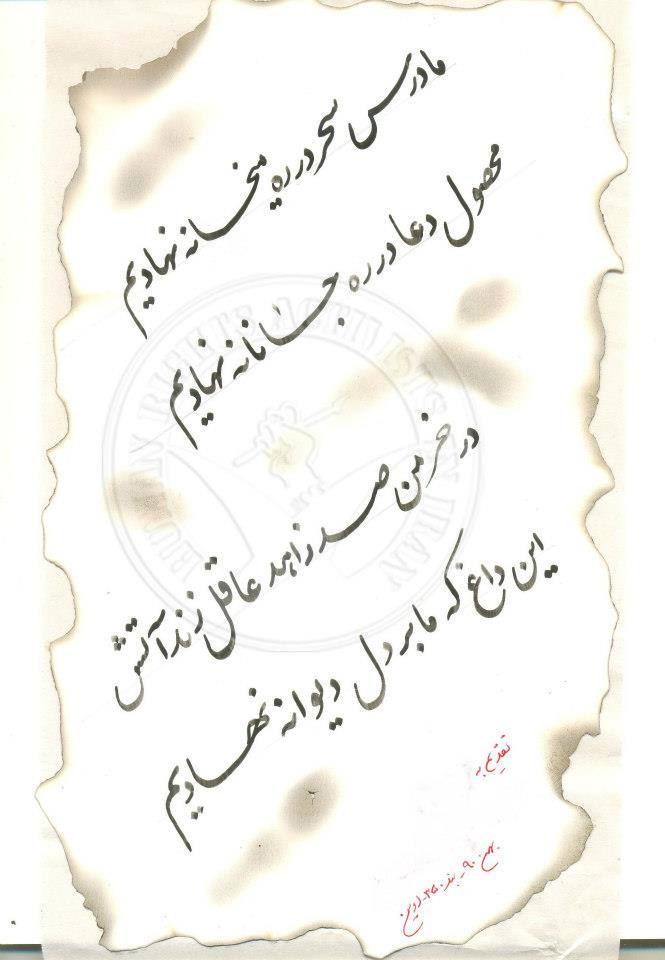 ما درس سحر در ره میخانه نهادیم
محصول دعا در ره جانانه نهادیم
در خرمن صد زاهد عاقل زند آتش
این داغ که ما بر دل دیوانه نهادیم
تقدیم به
بهمن ۹۰ - بند ۳۵۰ - اوین
HUMAN RIGHTS ACTIVISTS IN IRAN